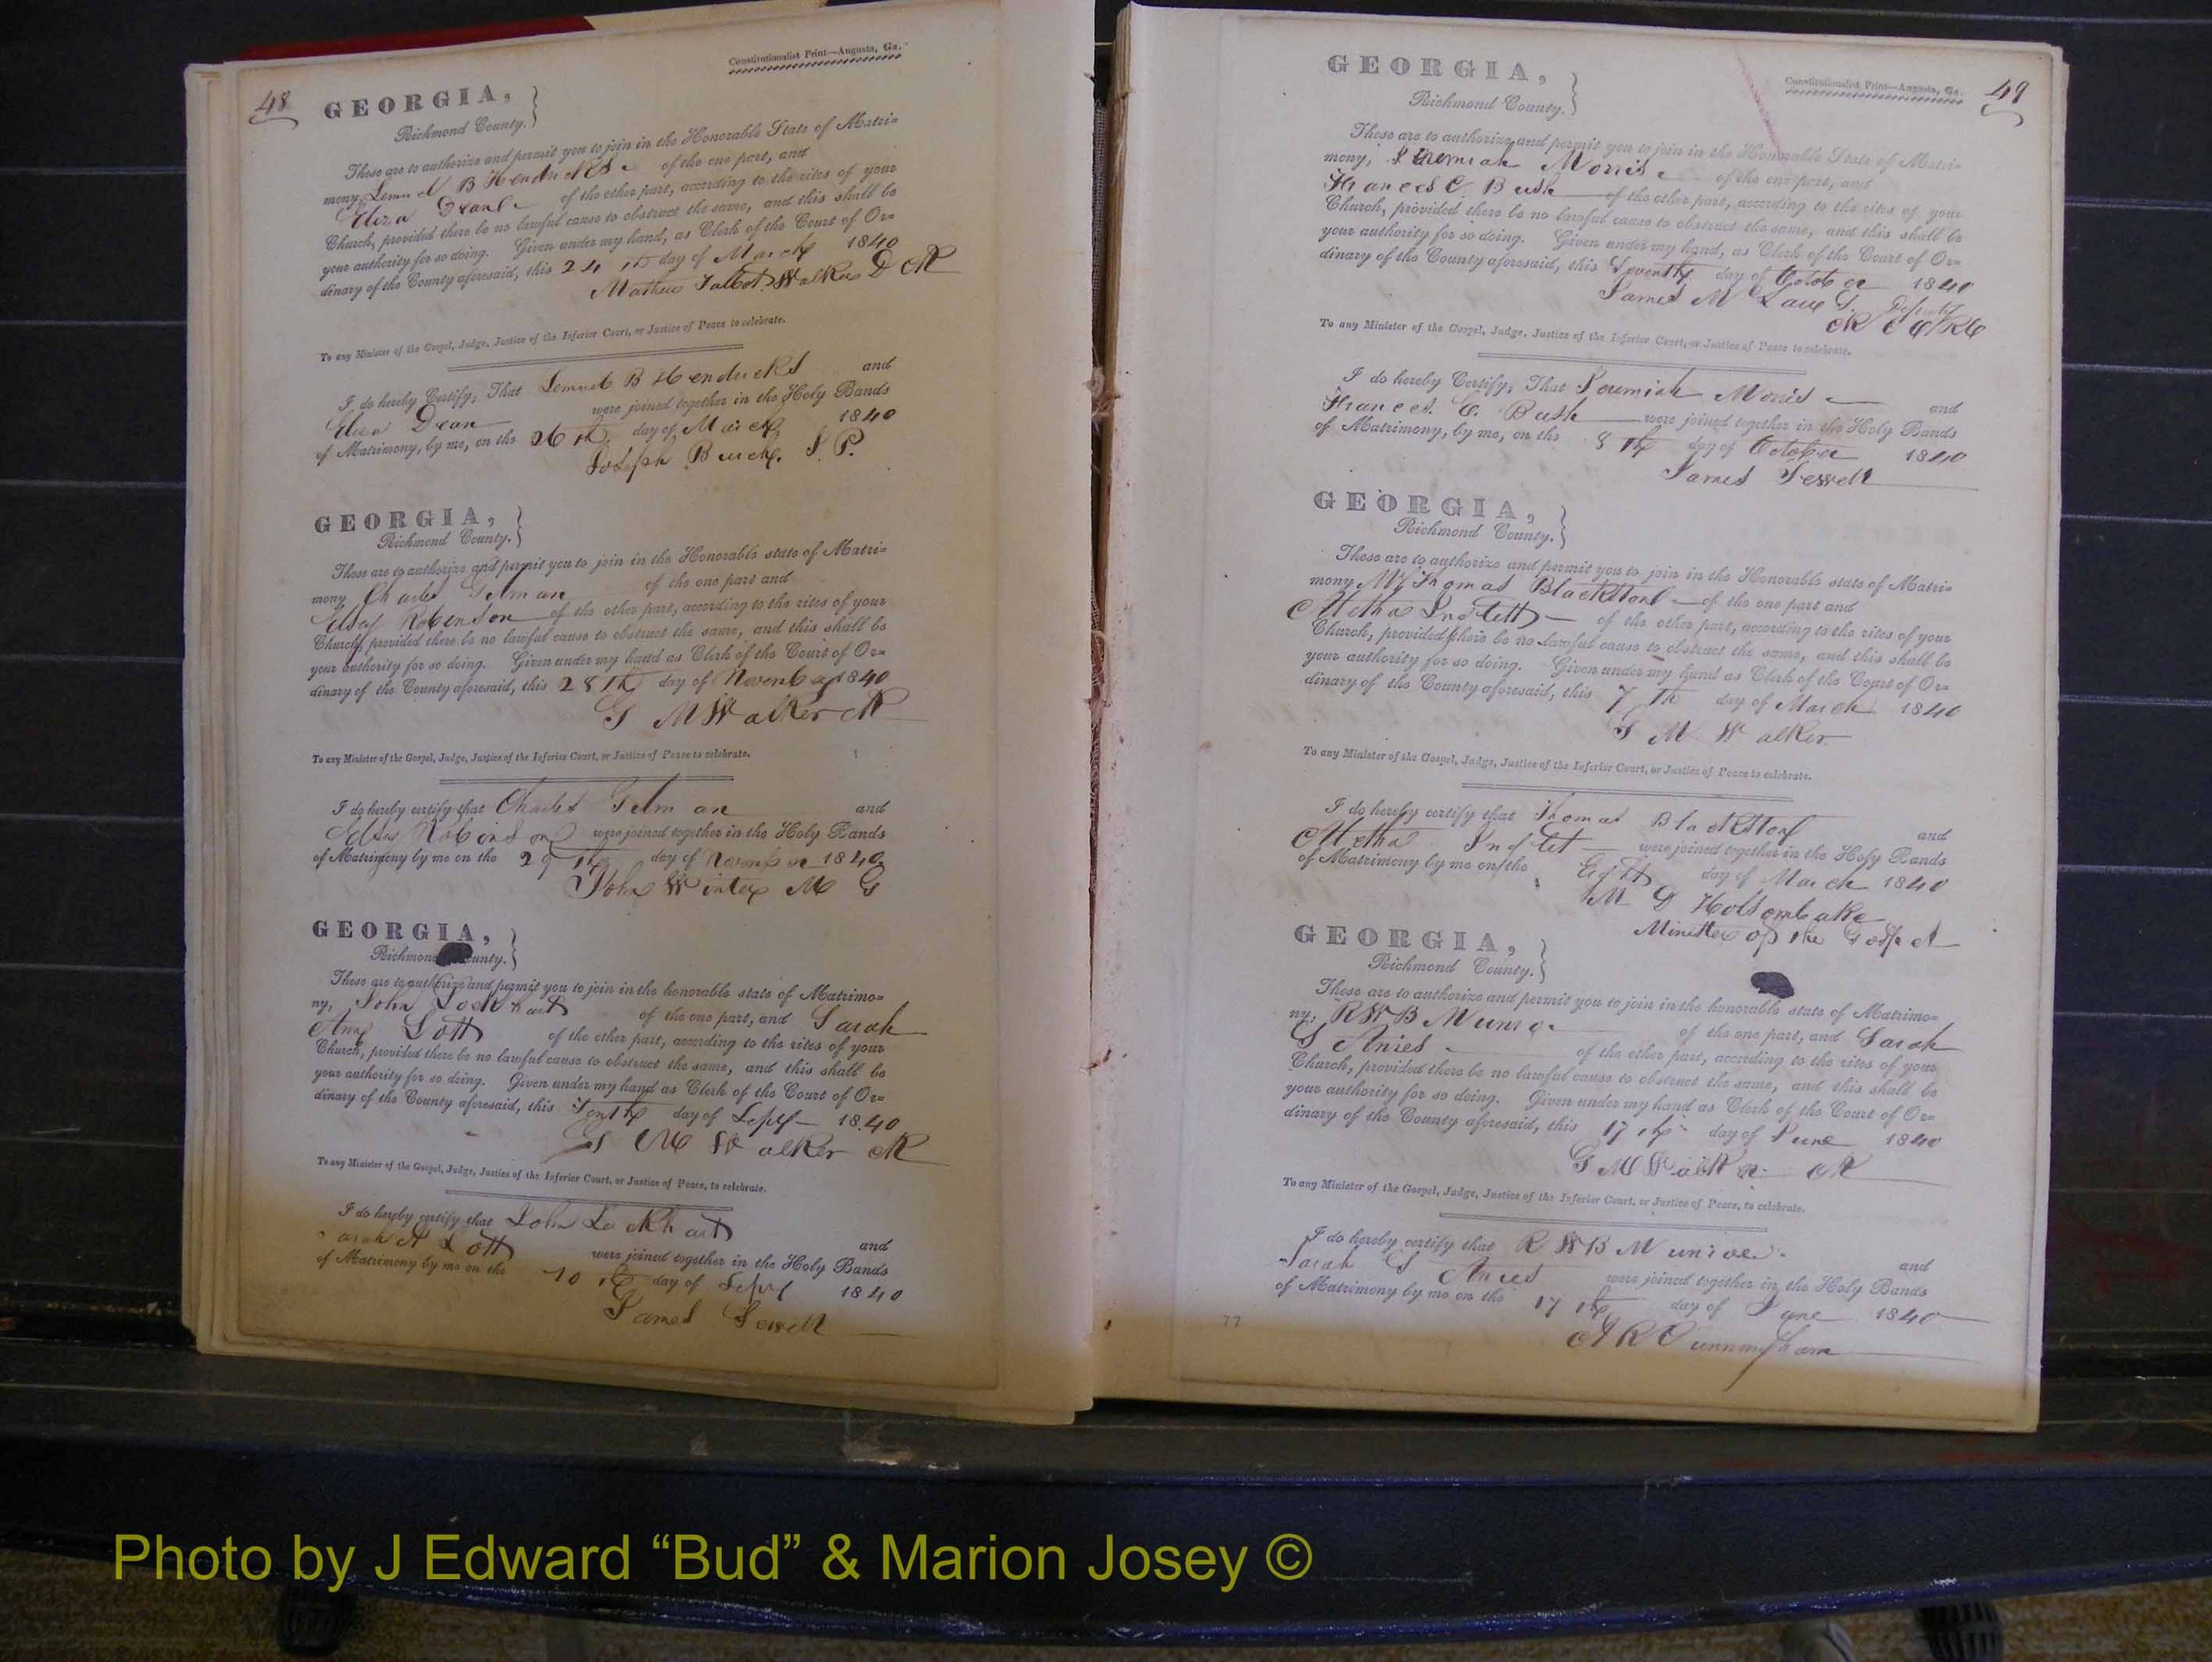 48
Constitutionalist Print—Augusta, Ga.
GEORGIA,
Richmond County.
These are to authorize and permit you to join in the Honorable State of Matri=
mony, Lemuel B Hendricks of the one part, and
Eliza Deane of the other part, according to the rites of your
Church, provided there be no lawful cause to obstruct the same, and this shall be
your authority for so doing. Given under my hand, as Clerk of the Court of Or=
dinary of the County aforesaid, this 24th day of March 1840
Mathew Talbot Walker D Clk
To any Minister of the Gospel, Judge, Justice of the Inferior Court, or Justice of Peace to celebrate.
I do hereby Certify, That Lemuel B Hendricks and
Eliza Dean were joined together in the Holy Bands
of Matrimony, by me, on the 26th day of March 1840
Joseph Burch. J. P.
GEORGIA,
Richmond County.
These are to authorize and permit you to join in the Honorable state of Matri=
mony Charles of the one part and
Robinson of the other part, according to the rites of your
Church, provided there be no lawful cause to obstruct the same, and this shall be
your authority for so doing. Given under my hand as Clerk of the Court of Or=
dinary of the County aforesaid, this 28th day of November 1840
G M Walker Clk
To any Minister of the Gospel, Judge, Justice of the Inferior Court, or Justice of Peace to celebrate.
I do hereby certify that Charles and
Robinson were joined together in the Holy Bands
of Matrimony by me on the 29th day of November 1840
John W intex M G
GEORGIA,
Richmond County.
These are to authorize and permit you to join in the honorable state of Matrimo=
ny, John Lockhart of the one part, and Sarah
Ann Lott of the other part, according to the rites of your
Church, provided there be no lawful cause to obstruct the same, and this shall be
your authority for so doing. Given under my hand as Clerk of the Court of Or=
dinary of the County aforesaid, this Tenth day of Sept 1840
G M Walker Clk
To any Minister of the Gospel, Judge, Justice of the Inferior Court, or Justice of Peace, to celebrate.
I do hereby certify that John Lockhart and
Sarah A Lott were joined together in the Holy Bands
of Matrimony by me on the 10th day of Sept 1840
James Sewell
Constitutionalist Print—Augusta, Ga.
49
GEORGIA,
Richmond County.
These are to authorize and permit you to join in the Honorable State of Matri=
mony, Jeremiah Morris of the one part, and
Frances E Bush of the other part, according to the rites of your
Church, provided there be no lawful cause to obstruct the same, and this shall be
your authority for so doing. Given under my hand, as Clerk of the Court of Or=
dinary of the County aforesaid, this Seventh day of October 1840
James M Laws Deputy
Clk
To any Minister of the Gospel, Judge, Justice of the Inferior Court, or Justice of Peace to celebrate.
I do hereby Certify, That Jeremiah Morris and
Frances. E. Bush were joined together in the Holy Bands
of Matrimony, by me, on the 8th day of October 1840
James Sewell
GEORGIA,
Richmond County.
These are to authorize and permit you to join in the Honorable state of Matri=
mony Mr Thomas Blackston of the one part and
Metha of the other part, according to the rites of your
Church, provided there be no lawful cause to obstruct the same, and this shall be
your authority for so doing. Given under my hand as Clerk of the Court of Or=
dinary of the County aforesaid, this 7th day of March 1840
G M Walker
To any Minister of the Gospel, Judge, Justice of the Inferior Court, or Justice of Peace to celebrate.
I do hereby certify that Thomas Blackston and
Metha were joined together in the Holy Bands
of Matrimony by me on the day of March 1840
M D Holsombake
Minister of the Gospel
GEORGIA,
Richmond County.
These are to authorize and permit you to join in the honorable state of Matrimo=
ny, R W B Munro of the one part, and Sarah
G Anies of the other part, according to the rites of your
Church, provided there be no lawful cause to obstruct the same, and this shall be
your authority for so doing. Given under my hand as Clerk of the Court of Or=
dinary of the County aforesaid, this 17th day of June 1840
G M Walker Clk
To any Minister of the Gospel, Judge, Justice of the Inferior Court, or Justice of Peace, to celebrate.
I do hereby certify that R W B Munroe and
Sarah G Anies were joined together in the Holy Bands
of Matrimony by me on the 17th day of June 1840
A R Cunningham
77
Photo by J Edward “Bud” & Marion Josey ©